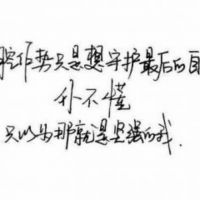 腔作势只是想守护最后的自
你不懂
只以为那就是坚强的我.